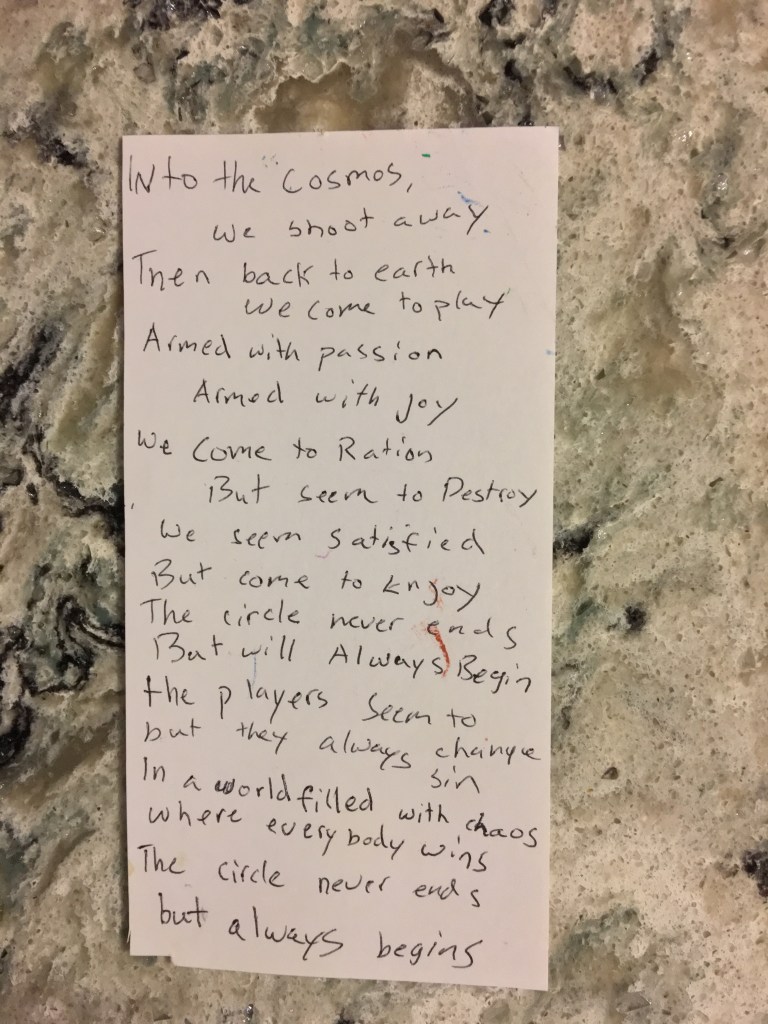 INto the cosmos,
we shoot away
Then back to earth
we come to play
Armed with passion
Armed with joy
We come to Ration
But seem to Destroy
We seem satisfied
But come to Enjoy
The circle never ends
But will Always Begin
the players seem to
but they always change
sin
In a world filled with chaos
where everybody wins
The circle never ends
but always begins